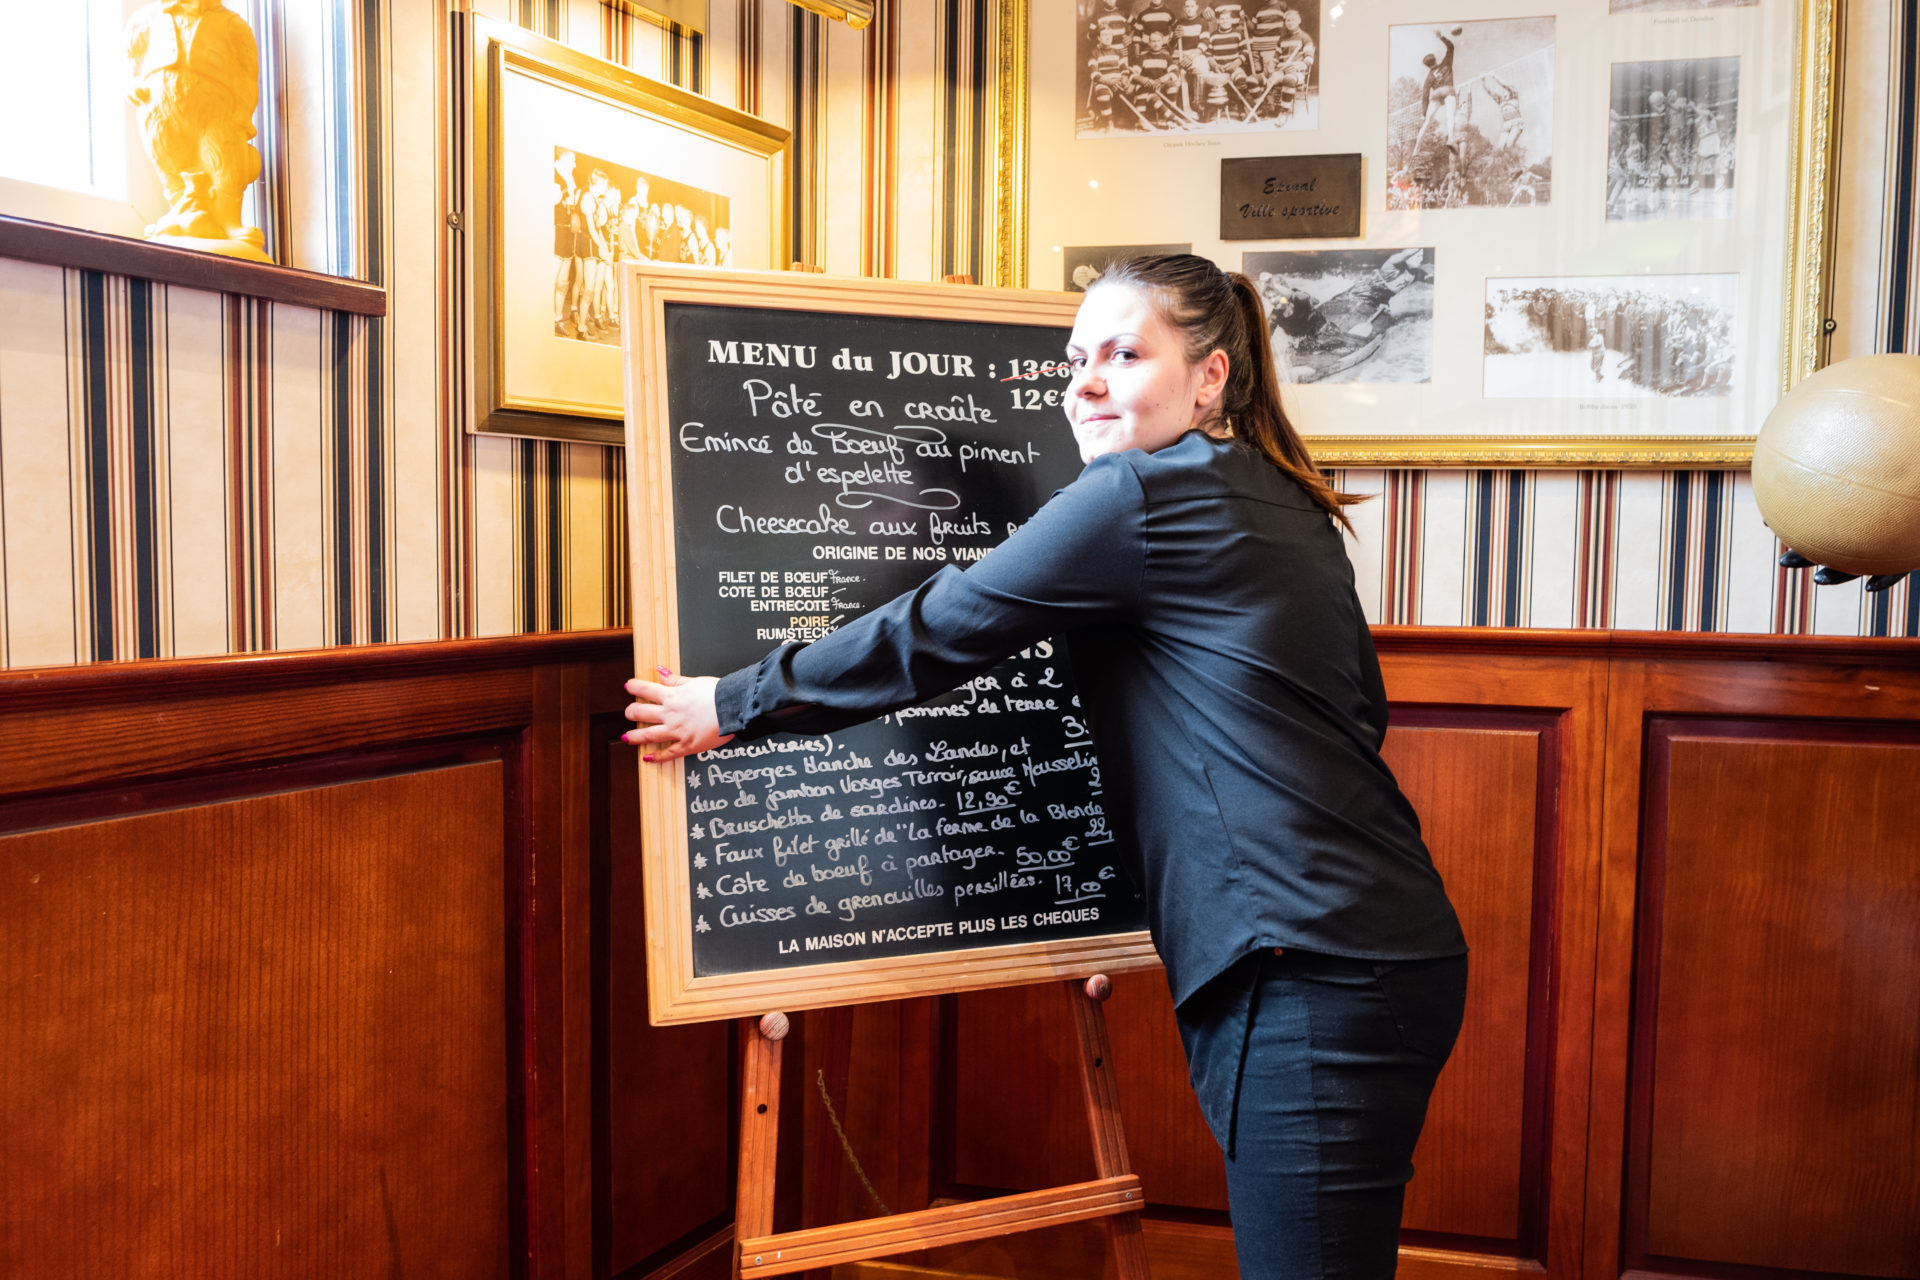 Ottawa Hockey Team
Epinal
Ville sportive
MENU du JOUR : 13€6
12€
Pâté en croûte
Emincé de boeuf au piment
d'espelette
Cheesecake aux fruits
ORIGINE DE NOS
FILET DE BOEUF France.
COTE DE BOEUF
ENTRECOTE France.
POIRE
RUMSTECK
à 2
, pommes de terre
charcuteries).
* Asperges blanche des Landes, et
duo de jambon Vosges Terroir, sauce
* Bruschetta de sardines. 12,90€
* Faux filet grillé de "La ferme de la Blonde
* Côte de boeuf à partager. 50,00€ 22,
* Cuisses de grenouilles persillées. 17,00€
LA MAISON N'ACCEPTE PLUS LES CHEQUES